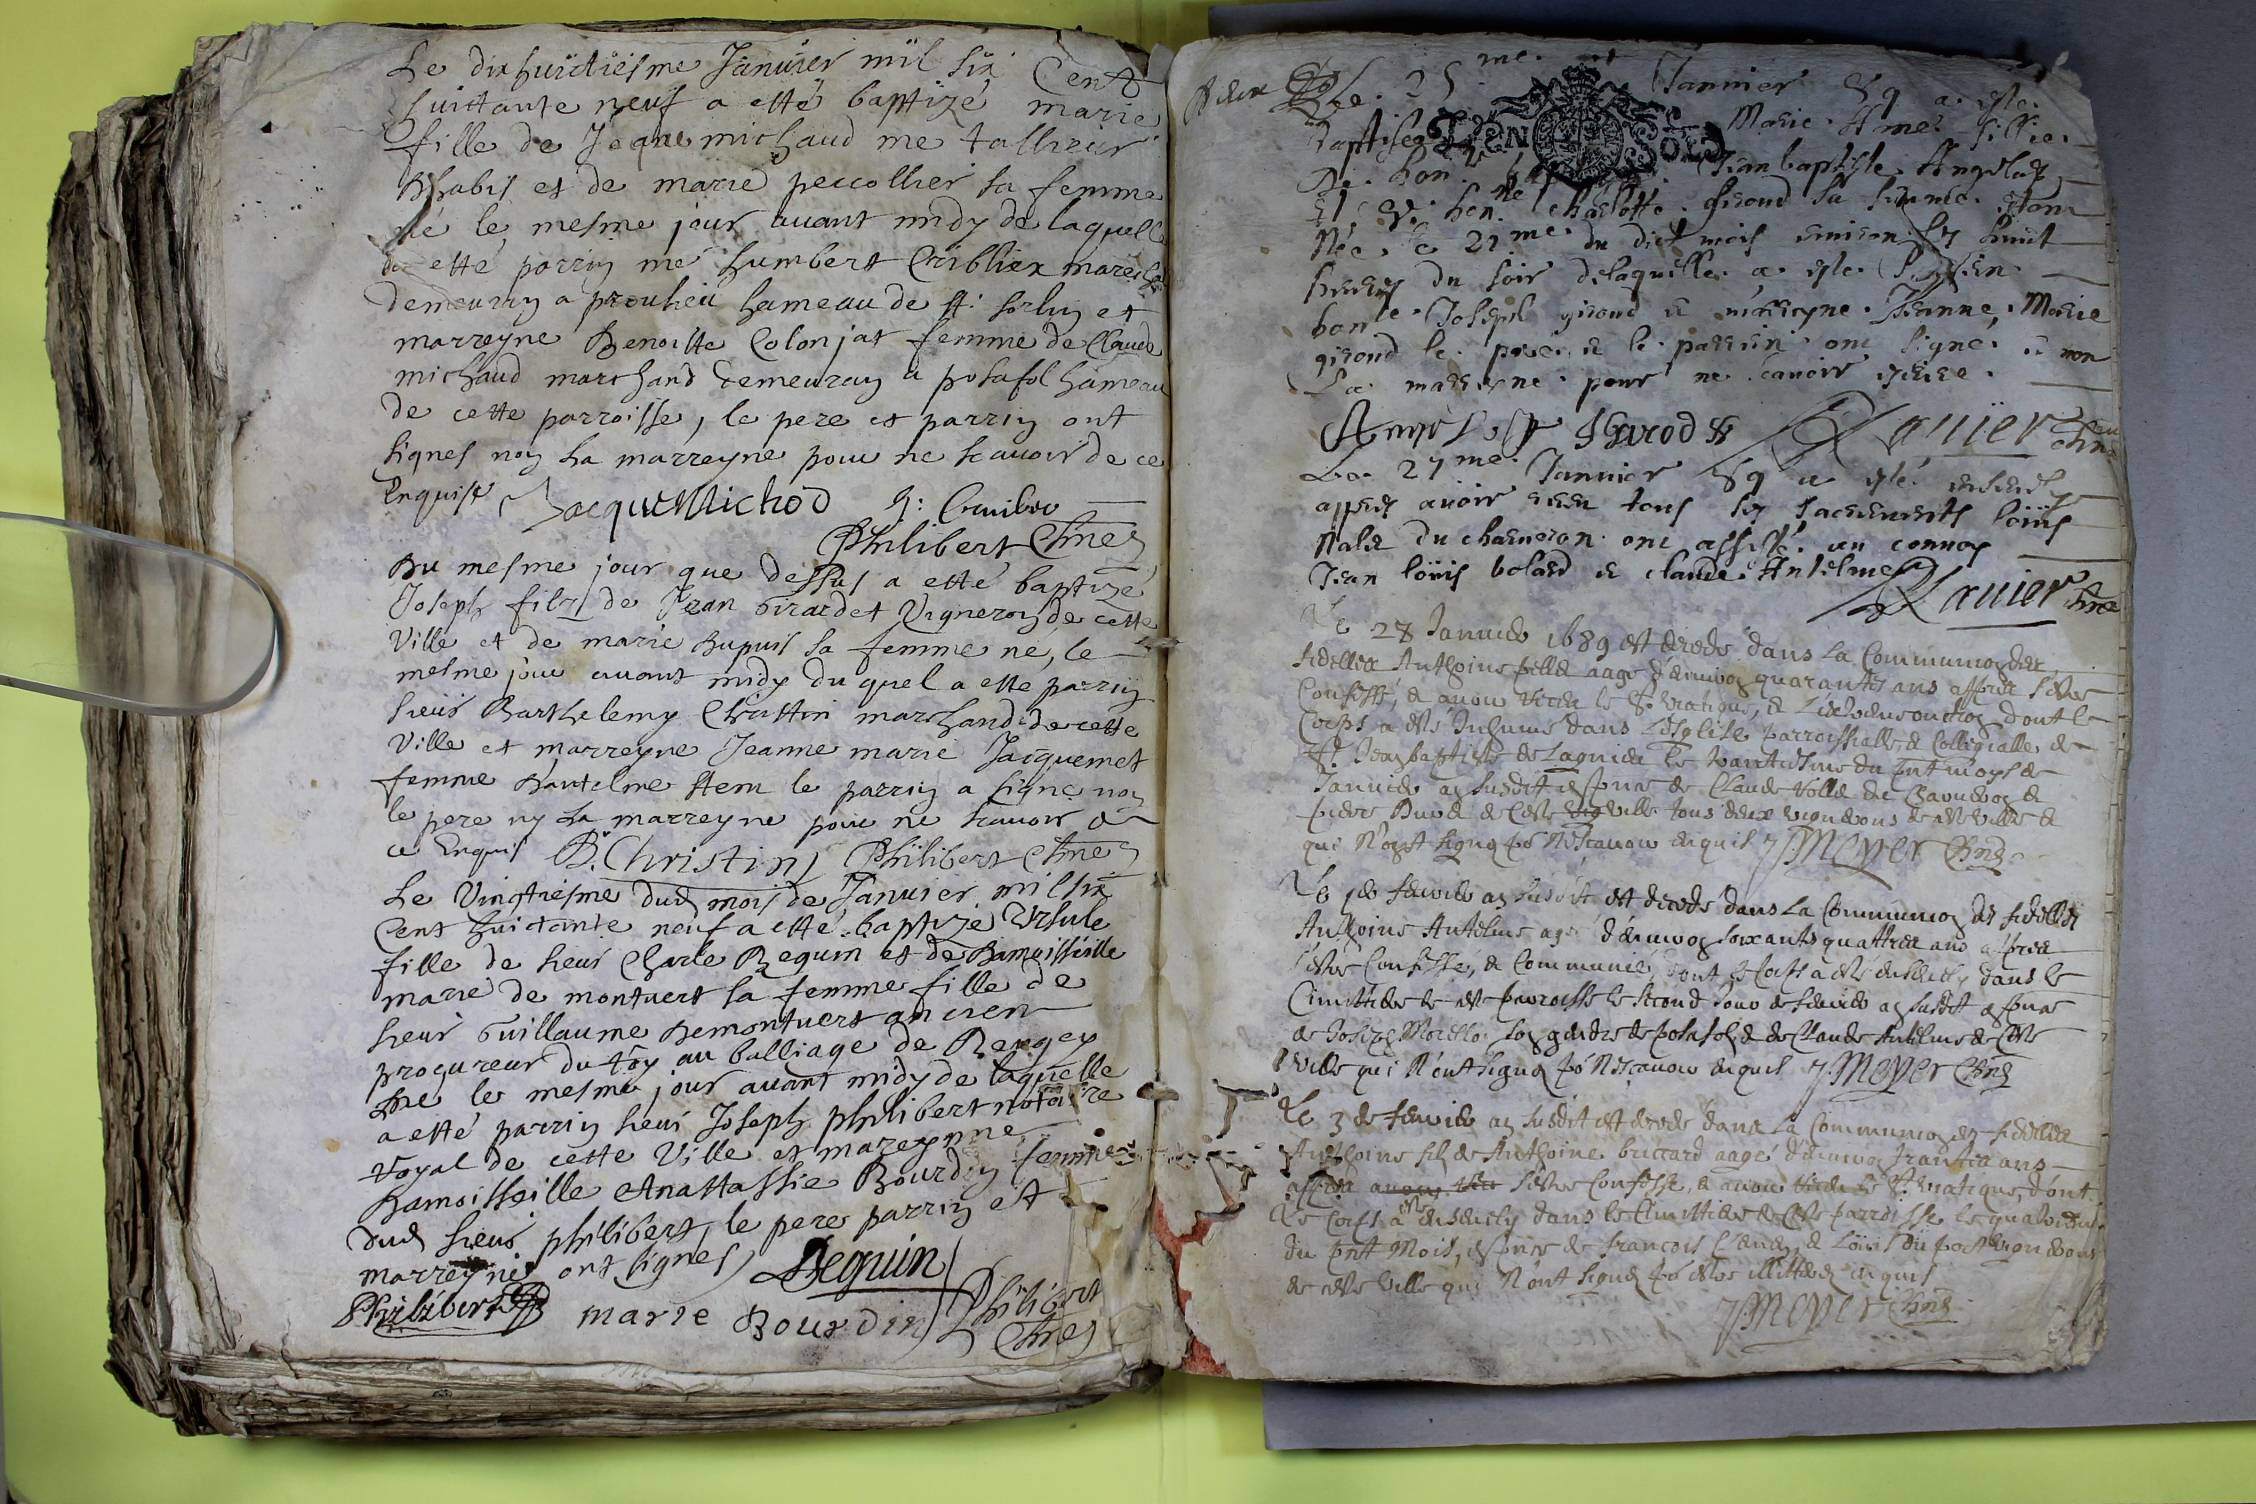 Le dix huictiesme Januier mil six Cent
huittante neuf a etté baptizé marie
fille de Jaque michaud me tallieur
dhabis et de marie peccollier sa femme
né le mesme jour auant midy de laquelle
a etté parrin me humbert Cribliex
demeuran a proulieu hameau de st: sorlin et
marreyne Benoitte Colonjat femme de Claude
michaud marchand demeuran a posafol hameau
de cette parroisse, le pere et parrin ont
signes non la marreyne pour ne scauoir de ce
Enquise Jacque Michod
Philibert Chne
Du mesme jour que dessus a etté baptizé
Joseph filz de Jean Girardet Vigneron de cette
Ville et de marie Dupuis sa femme né, le
mesme jour auant midy du quel a ette parrin
sieur Barthelemy Christin marchand de cette
Ville et marreyne Jeanne marie Jacquemet
femme Dantelme Item le parrin a signe non
le pere ny la marreyne pour ne scauoir de
ce Enquis B. Christin Philibert Chne
Le Vingtiesme dud mois de Januier mil six
Cent huictante neuf a etté baptizé Vrsule
fille de sieur Charle Reguin et de Damoiselle
marie de montuert sa femme fille de
sieur Guillaume Demontuert ancien
procureur du roy au balliage de Beugey
née le mesme jour auant midy de laquelle
a etté parrin sieur Joseph philibert notaire
royal de cette Ville et mareynne
Damoisseille Anastassie Bourdin femme
dud sieur philibert, le pere parrin et
marreyne ont signes Reguin
Philibert marie Bourdin Philibert
Chne
25me Januier 89 a esté
baptisée Marie Aimé fille
De hon. Jean baptiste
et de hon.ne Charlotte girond sa femme
Née le 21me du dict mois enuiron les huict
heures du soir de laquelle a esté parrein
hon.e Joseph girond et marreyne Jeanne, Marie
girond le pere et le parrein ont signé et non
La marreyne pour ne scauoir
Girod Lauier Chne
Le 27me Januier 89 a esté enseuely
appres auoir receu tous les sacrements loüis
du charneron ont assisté au conuoy
Jean loüis bolard et claude Antelme
Lauier Chne
Le 28 Januier 1689 est decede dans la Communion des
fidelles Anthoine aagé d'enuiron quarantes ans appres s'estre
Confessé, et auoir receu le St. viatique, et L'extreme onction dont le
Corps a esté Inhumé dans L'Esglise parroissialle, et Collegialle de
St. Jean baptiste de Lagnieu le trantiesme du pnt moys de
Januier an susdit es pnce de Claude
de Ceste ville tous deux vignerons de ceste ville et
qui N'ont signé po. N'scauoir enquis Meyer Chne
Le 1er feurier an susdit est decede dans la Communion des fidelles
Anthoine Antelme agé d'enuiron soixante quattre ans appres
s'estre Confessé, et Communié, dont le Corps a esté enseuely dans le
Cimittiere de ceste parroisse le second Jour de feurier an susdit es pnce
de Joseph Morello son gendre de posafol et de Claude Antelme de Ceste
ville qui N'ont signé po N'scauoir enquis Meyer Chne
Le 3 de feurier an susdit est decede dans la Communion des fidelles
Anthoine fils de Anthoine briccard aagé d'enuiron trantes ans
appres s'estre Confessé, et auoir receu le St. viatique, dont
Le Corps a esté enseuely dans le Cimittiere de Ceste parroisse le quatriesme
du pnt Mois, es pnce de francois et Loüis du port vignerons
de ceste ville qui N'ont signé po estre illitteres enquis
Meyer Chne